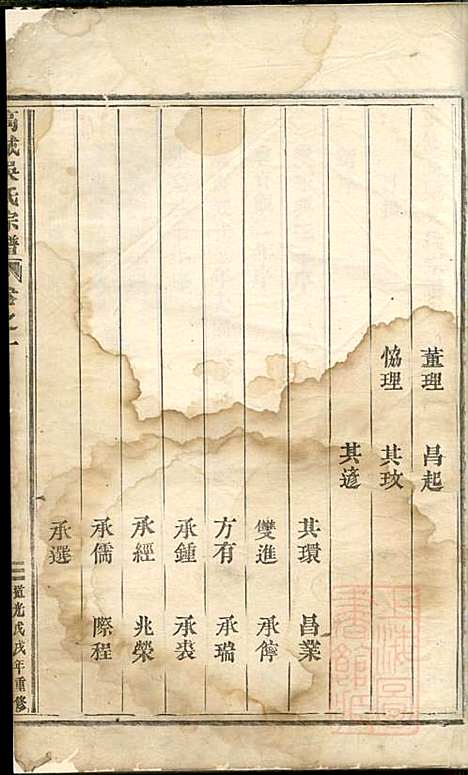 董理 昌起
恊理 其玫
其遮
其環 昌業
雙進 承儜
方有 承瑞
承鍾 承裘
承經 兆榮
承儒 際程
承選
吳氏宗譜 卷之一
道光戊戌年重修
上海圖書館藏